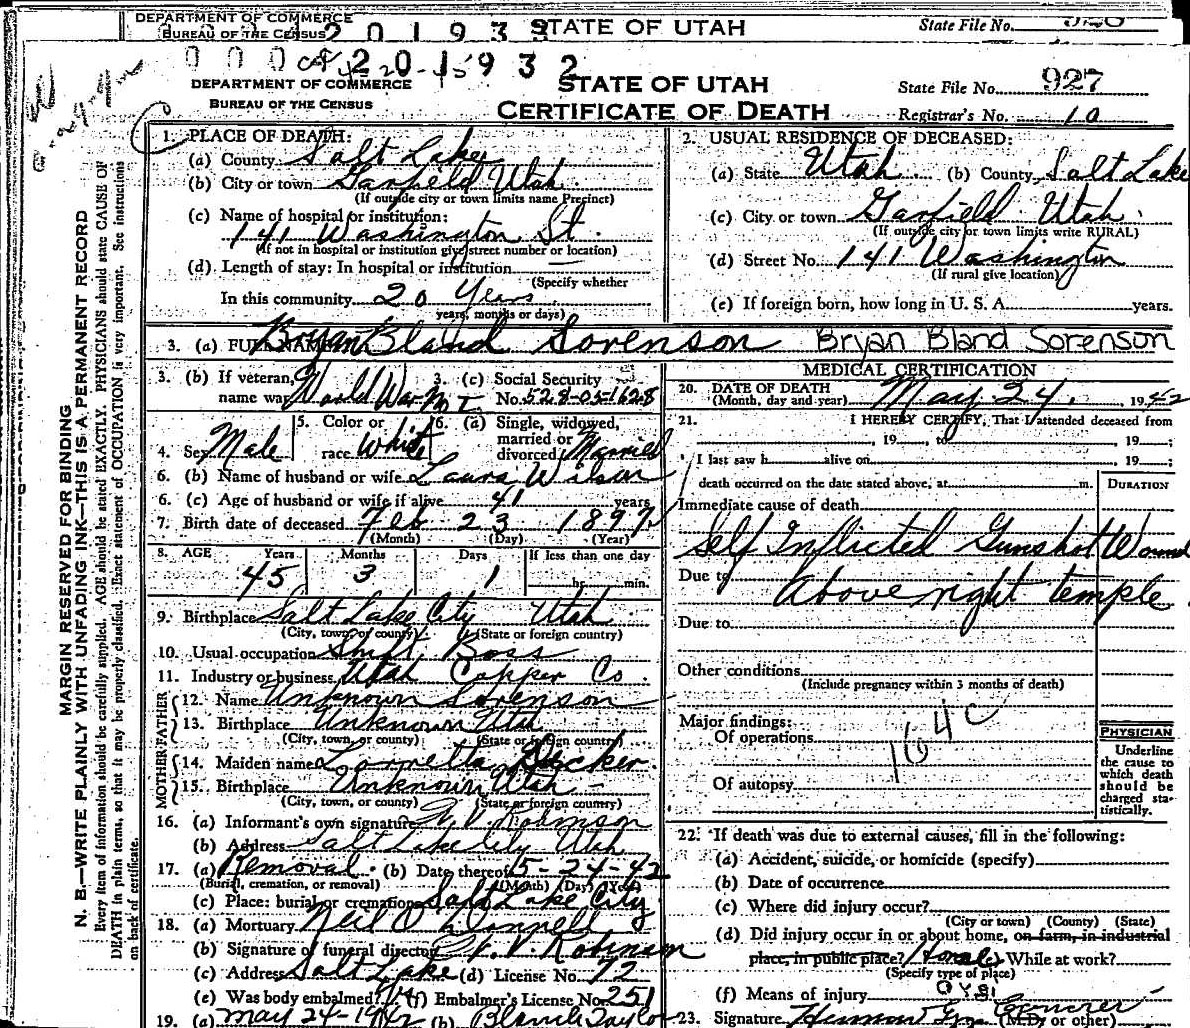 DEPARTMENT OF COMMERCE
BUREAU OF THE CENSUS
2 0 1 9 3 3
STATE OF UTAH
State File No.
0 0 0 2 0 1 9 3 2
DEPARTMENT OF COMMERCE
BUREAU OF THE CENSUS
STATE OF UTAH
CERTIFICATE OF DEATH
State File No. 927
Registrar's No. 10
MARGIN RESERVED FOR BINDING
N. B.—WRITE PLAINLY WITH UNFADING INK—THIS IS A PERMANENT RECORD
Every item of information should be carefully supplied. AGE should be stated EXACTLY. PHYSICIANS should state CAUSE OF
DEATH in plain terms, so that it may be properly classified. Exact statement of OCCUPATION is very important. See instructions
on back of certificate.
1. PLACE OF DEATH:
(a) County Salt Lake
(b) City or town Garfield Utah
(If outside city or town limits name Precinct)
(c) Name of hospital or institution:
141 Washington St.
(If not in hospital or institution give street number or location)
(d) Length of stay: In hospital or institution
(Specify whether
In this community 20 Years
years, months or days)
2. USUAL RESIDENCE OF DECEASED:
(a) State Utah (b) County Salt Lake
(c) City or town Garfield Utah
(If outside city or town limits write RURAL)
(d) Street No. 141 Washington
(If rural give location)
(e) If foreign born, how long in U. S. A. years.
3. (a) FULL NAME Bryan Bland Sorenson Bryan Bland Sorenson
3. (b) If veteran, name war World War No I
3. (c) Social Security No. 528-05-1628
4. Sex Male
5. Color or race White
6. (a) Single, widowed, married or divorced Married
6. (b) Name of husband or wife Laura Wilson
6. (c) Age of husband or wife if alive 41 years
7. Birth date of deceased Feb 23 1897
(Month) (Day) (Year)
8. AGE Years Months Days If less than one day
45 3 1 hr. min.
9. Birthplace Salt Lake City Utah
(City, town or county) (State or foreign country)
10. Usual occupation Shift Boss
11. Industry or business Utah Copper Co.
FATHER
12. Name Unknown Sorenson
13. Birthplace Unknown Utah
(City, town, or county) (State or foreign country)
MOTHER
14. Maiden name Lorretta Decker
15. Birthplace Unknown Utah
(City, town, or county) (State or foreign country)
16. (a) Informant's own signature V. Robinson
(b) Address Salt Lake City Utah
17. (a) Removal (b) Date thereof 5-24-42
(Burial, cremation, or removal) (Month) (Day) (Year)
(c) Place: burial or cremation Salt Lake City
18. (a) Mortuary Neil O'Donnell
(b) Signature of funeral director V. Robinson
(c) Address Salt Lake (d) License No. 72
(e) Was body embalmed? (f) Embalmer's License No. 251
19. (a) May 24-1942 (b) Blanch Taylor
MEDICAL CERTIFICATION
20. DATE OF DEATH
(Month, day and year) May 24, 1942
21. I HEREBY CERTIFY, That I attended deceased from
, 19 , to , 19 ;
I last saw h alive on , 19 ;
death occurred on the date stated above, at m.
DURATION
Immediate cause of death
Self Inflicted Gunshot Wound
Due to Above right temple
Due to
Other conditions
(Include pregnancy within 3 months of death)
Major findings:
Of operations
164c
Of autopsy
PHYSICIAN
Underline
the cause to
which death
should be
charged sta-
tistically.
22. If death was due to external causes, fill in the following:
(a) Accident, suicide, or homicide (specify)
(b) Date of occurrence
(c) Where did injury occur?
(City or town) (County) (State)
(d) Did injury occur in or about home, on farm, in industrial
place, in public place? Home While at work?
(Specify type of place)
(f) Means of injury
23. Signature Coroner
(M.D. or other)